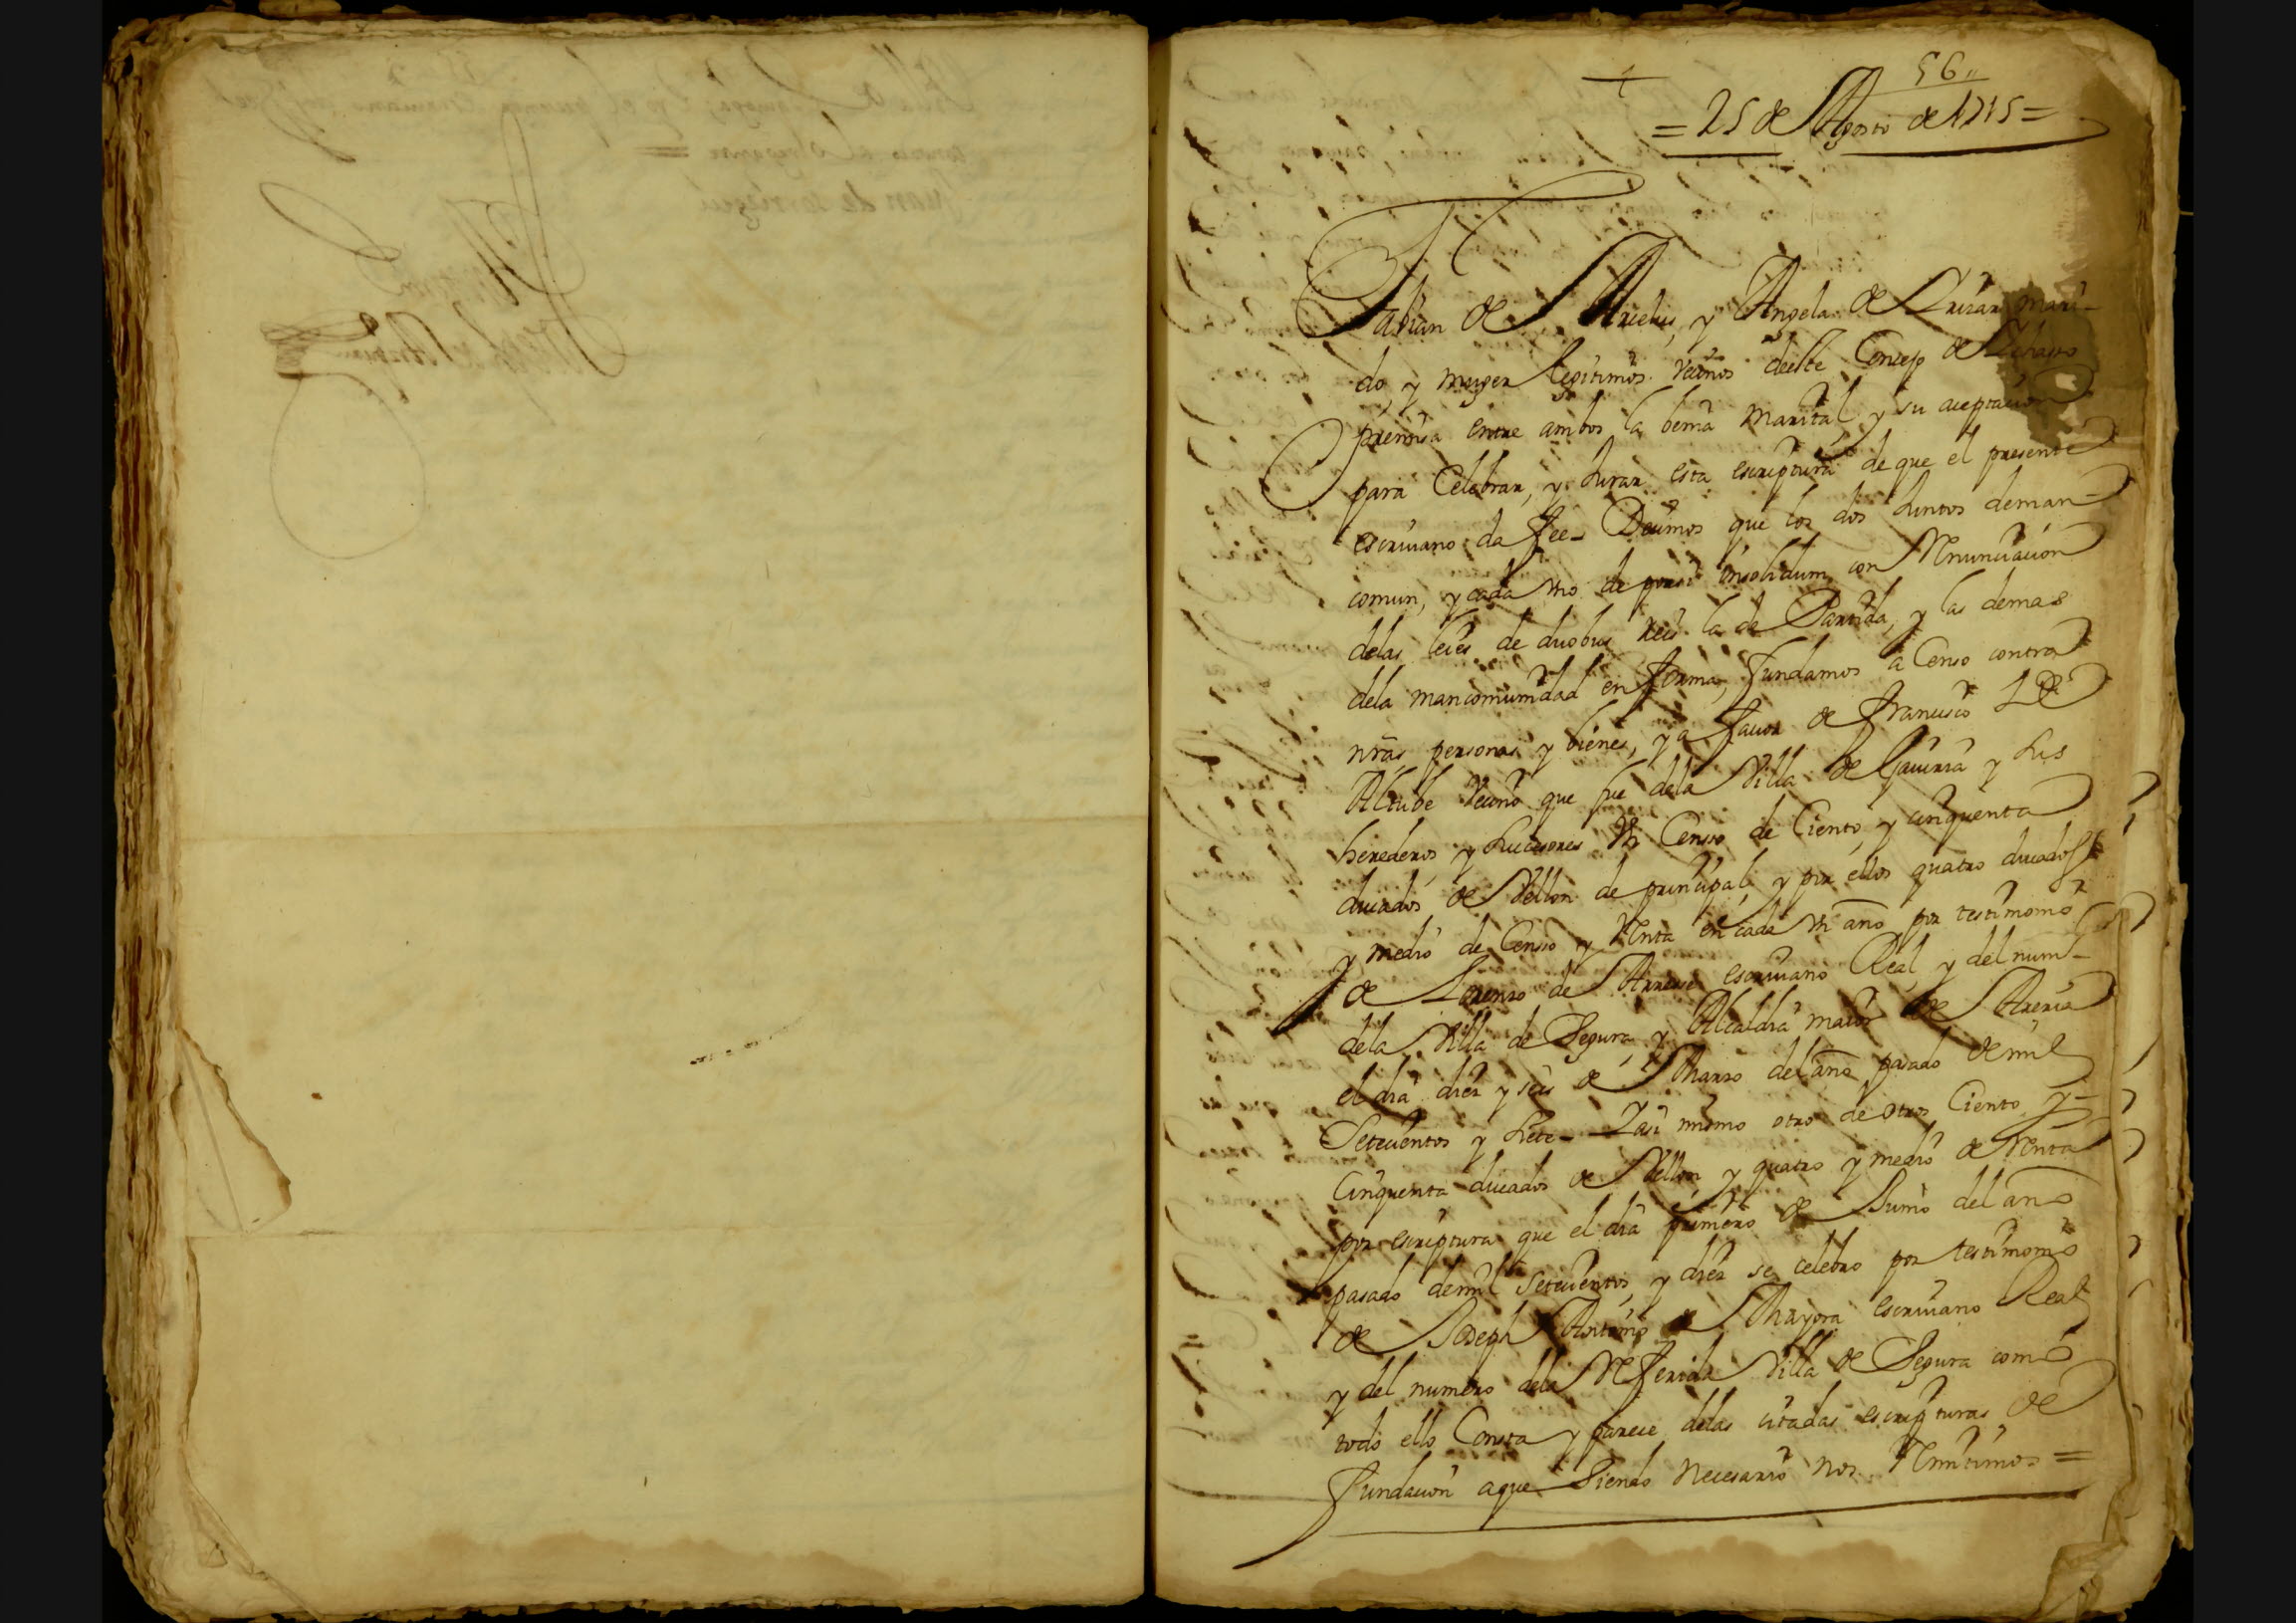 56
= 25 de Agosto de 1715 =
Fabian de y Angela de mari-
do, y muger legitimos vecinos deeste Concejo de
premisa entre ambos la benia Marital, y su aceptacion
para Celebrar, y Jurar esta escriptura de que el presente
escriuano da fee- Decimos que los dos Juntos deman-
comun, y cada vno de porsi insolidum, con Renunciacion
delas leies de duobus reis la de Partida, y las demas
dela mancomunidad en forma, fundamos a Censo contra
nrãs personas y bienes, y a fauor de Francisco
Altube vecino que fue dela Villa de Gauiria y sus
herederos, y sucesores Vn Censo de Ciento, y cinquenta
ducados de Vellon de principal, y por ellos quatro ducados
y medio de Censo y Renta en cada vn año por testimonio
de Lorenzo de escriuano Real y del num-
dela Villa de Segura, y Alcaldia maior de Areria
el dia diez y seis de Marzo del año pasado de mil
Setecientos y siete- Yasi mismo otro de otros Ciento y-
Cinquenta ducados de Vellon y quatro y medio de Renta
por escriptura que el dia primero de Junio del año
pasado demil Setecientos, y diez se celebro por testimonio
de Joseph Antonio de Mayora escriuano Real
y del numero dela Referida Villa de Segura como
todo ello Consta y parece delas citadas escripturas de
fundacion aque Siendo Necesario nos Rémitimos =